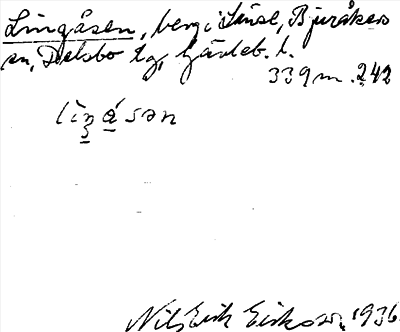 Lingåsen, berg i Linse, Bjuråkers
sn, Delsbo tg, Gävleb. l.
339 m. 242
lìŋåsən
Nils Erik Eriksson, 1936